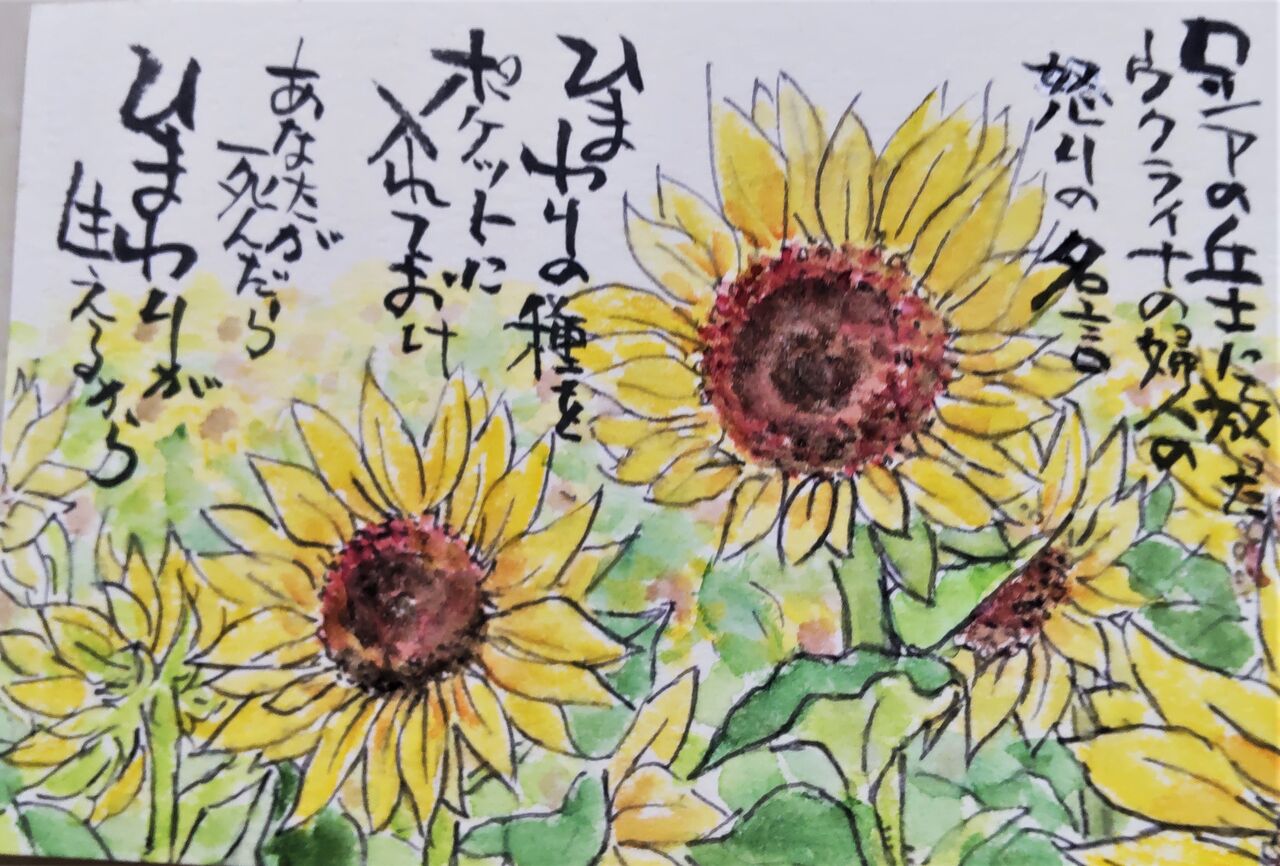 ロシアの兵士に放った
ウクライナの婦人の
怒りの名言
ひまわりの種を
ポケットに
入れておけ
あなたが
死んだら
ひまわりが
生えるから